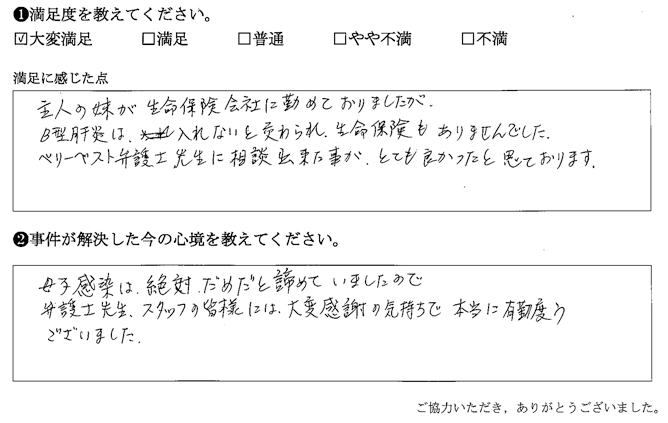 ❶満足度を教えてください。
☑大変満足 □満足 □普通 □やや不満 □不満
満足に感じた点
主人の妹が生命保険会社に勤めておりましたが、
B型肝炎は、入れないと交わられ、生命保険もありませんでした。
ベリーベスト弁護士先生に相談出来た事が、とても良かったと思ております。
❷事件が解決した今の心境を教えてください。
母子感染は、絶対、だめだと諦めていましたので
弁護士先生、スタッフの皆様には、大変感謝の気持ちで本当に有勤度う
ございました。
ご協力いただき，ありがとうございました。